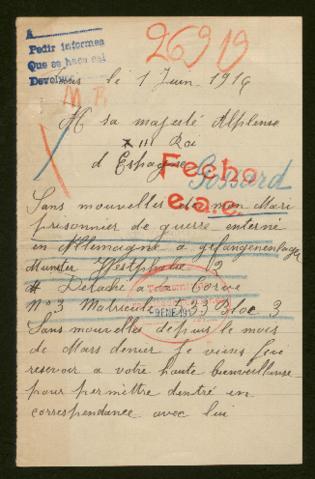 A
Pedir informes
Que se haca asi
Devolver
26919
M R
le 1 Juin 1916
A sa majesté Alphonse
XIII Roi
d Espagne
Fecho
e.a.c.
Gossard
Sans nouvelles de mon Mari
prisonnier de guerre interné
en Allemagne a gefangenenlager
Munster Westphalie 2
Détaché a Corvé
N° 3 Matricule 533 Bloc 3
Sans nouvelles depuis le mois
de Mars dernier Je viens
reservoir a votre haute bienveillanse
pour permêttre d'entré en
correspondance avec lui